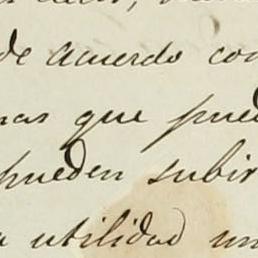 de acuerdo con
que pued
pueden subir
utilidad un